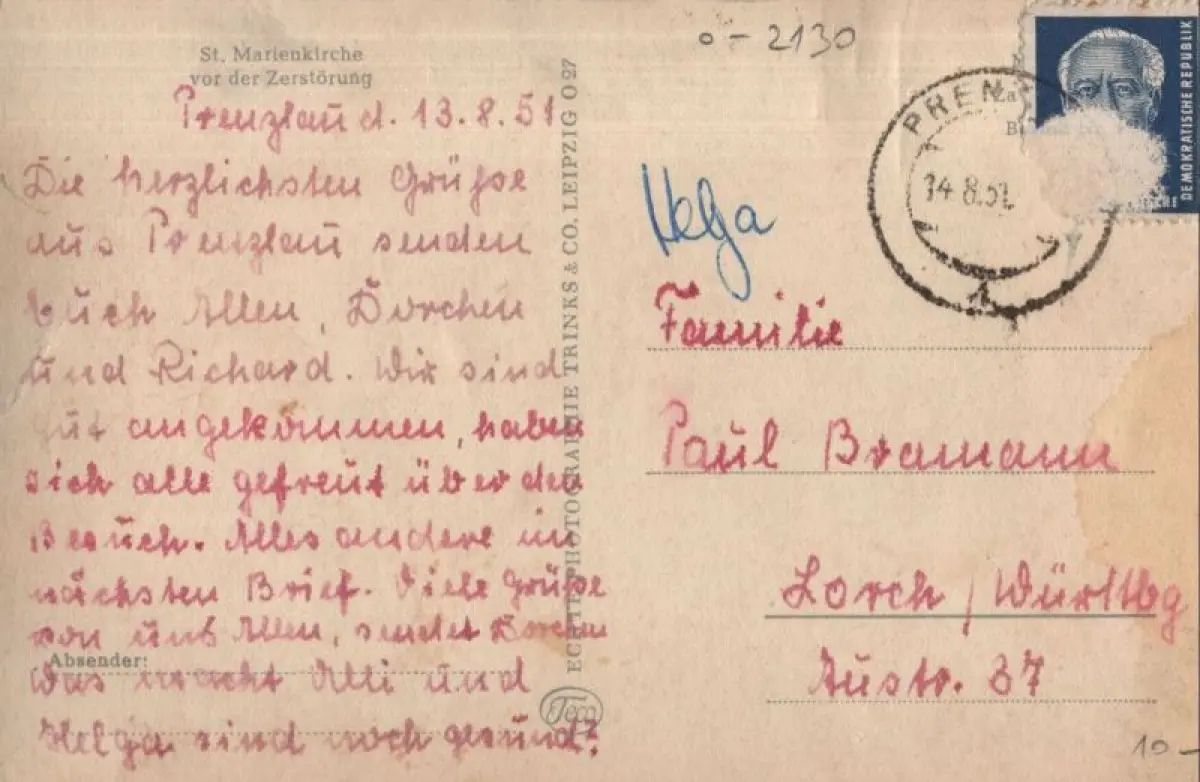 St. Marienkirche
vor der Zerstörung
Prenzlau d. 13.8.51
Die herzlichsten Grüße
aus Prenzlau senden
Euch Allen, Dorchen
und Richard. Wir sind
gut angekommen, haben
sich alle gefreut über den
Besuch. Alles andere im
nächsten Brief. Viele Grüße
von uns Allen, sendet Dorchen
Absender:
Was macht Alli und
Helga sind noch gesund?
ECHTE PHOTOGRAPHIE TRINKS & CO. LEIPZIG O 27
Teco
o - 2130
DEMOKRATISCHE REPUBLIK
PREN
14.8.51
1
Helga
Familie
Paul Bramann
Lorch / Württbg
Austr. 37
10 -